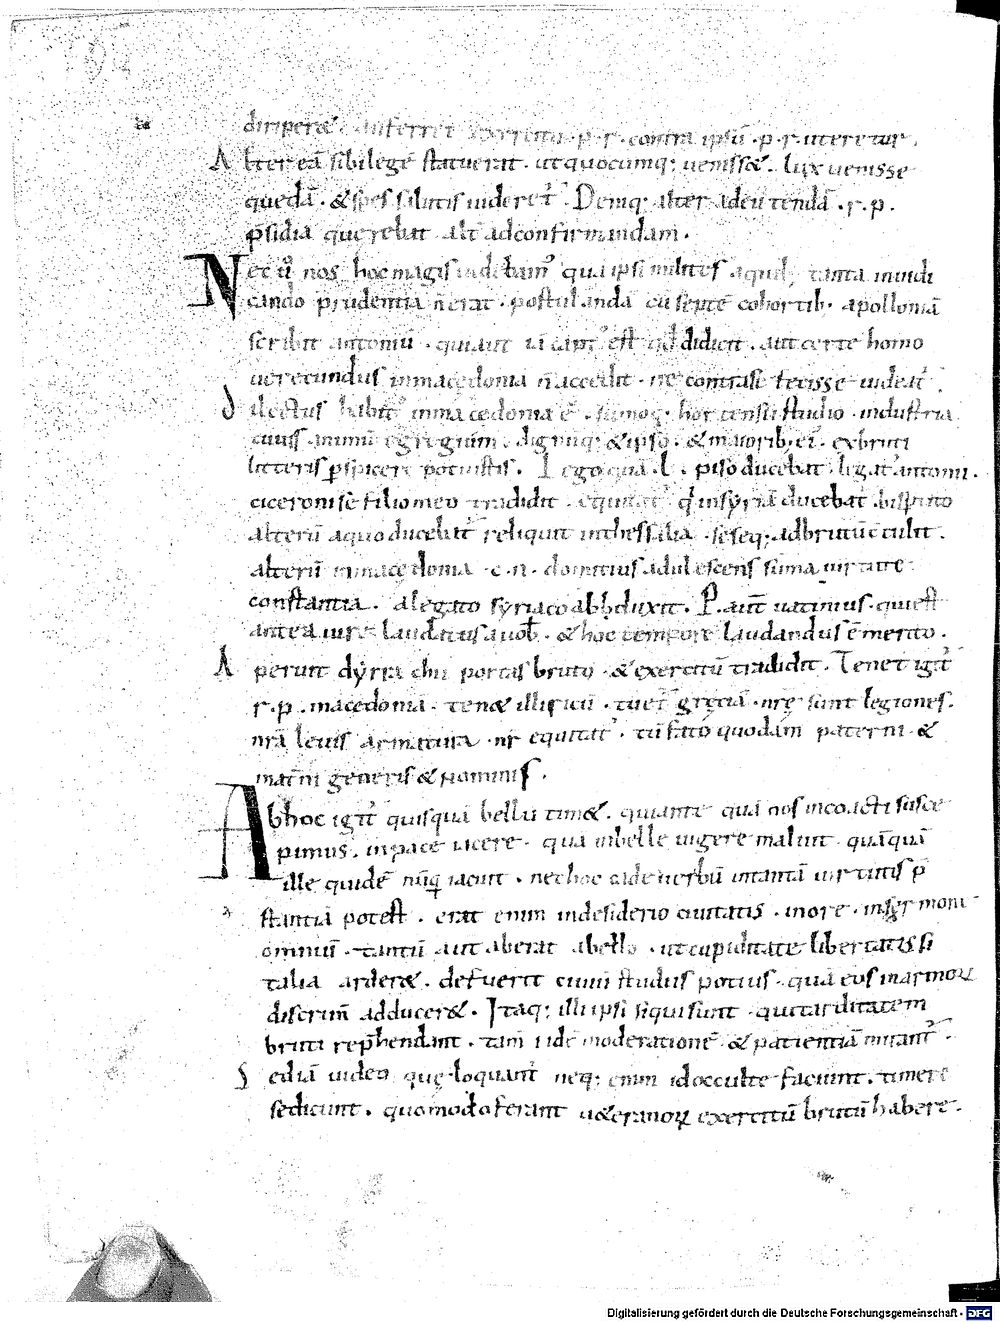 diriperet auferret exercitu · p · r · contra ipsū · p · r · uteretur ·
Alter eā sibi legē statuerat · ut quocumq; uenisset · lux uenisse
quedā · & spes salutis uideret̄ · Deniq; alter adeūtendā · r · p ·
p̄sidia querebat alt̄ ad confirmandam ·
Nec ů nos hoc magis uidebam᾿ quā ipsi milites a quib; tanta iniudi
cando prudentia n̄ erat · postulanda cū septē cohortib; apolloniā
scribit antoniū · qui aut iā capt᾿ est aut certe homo
uerecundus in macedonia n̄ accedit · ne contra sc̄ fecisse uideat᾿ ·
dilectus habit᾿ in macedonia ē · sūmoq; hortensii studio · industria
cuius animū egregium · dignūq; & ipso · & maiorib; ei᾿ · ex bruti
litteris p̱spicere potuistis · Legio quā · l · piso ducebat legat᾿ antonii ·
ciceroni se filio meo tradidit · equitat᾿ q̄ in syriā ducebat᾿ bispitito
alterū a quo ducebat᾿ reliquit in thessalia · seseq; ad brutū c̄tulit ·
alterū in macedonia · c · n · domitius adulescens sūma uirtute
constantia · a legato syriaco abduxit · P · aut̄ uatinius · qui est
antea iure laudatus a uob̄ · & hoc tempore laudandus ē merito ·
Aperuit dyrrachii portas bruto · & exercitū tradidit · Tenet igit᾿
r · p · macedoniā · tenet illiricū · tuet᾿ gręciā · nr̄ę sunt legiones ·
nr̄a leuis armatura · nr̄ equitat᾿ · tū fato quodam paterni · &
mat̄ni generis & nominis ·
Ab hoc igit᾿ quisquā bellū timet · qui ante quā nos in coacti susce
pimus · in pace iacere · quā in belle uigere maluit · quāquā
ille quidē nūq̄ iacuit · nec hoc cadere uerbū in tantā uirtutis p̄
stantiā potest · erat enim in desiderio ciuitatis · in ore · in sermoni
omniū · tantū aut aberat a bello · ut cupiditate libertatis si
talia arderet · defuerit ciuiū studiis potius · quā eos in armorꝝ
discrim̄ adduceret · Itaq; illi ipsi siqui sunt · qui tarditatem
bruti rep̄hendant · tam̄ idē moderationē & patientiā mirant᾿ ·
Sed iā uideo quę loquant᾿ neq; enim id occulte faciunt · timere
se dicunt · quomodo ferant ueteranorꝝ exercitū brutū habere ·
Digitalisierung gefördert durch die Deutsche Forschungsgemeinschaft - DFG